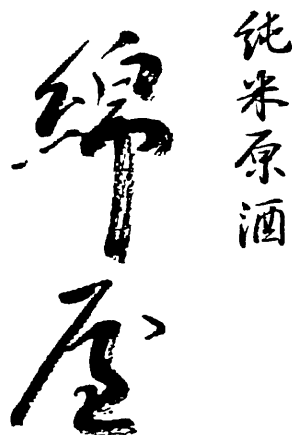 純米原酒
綿屋